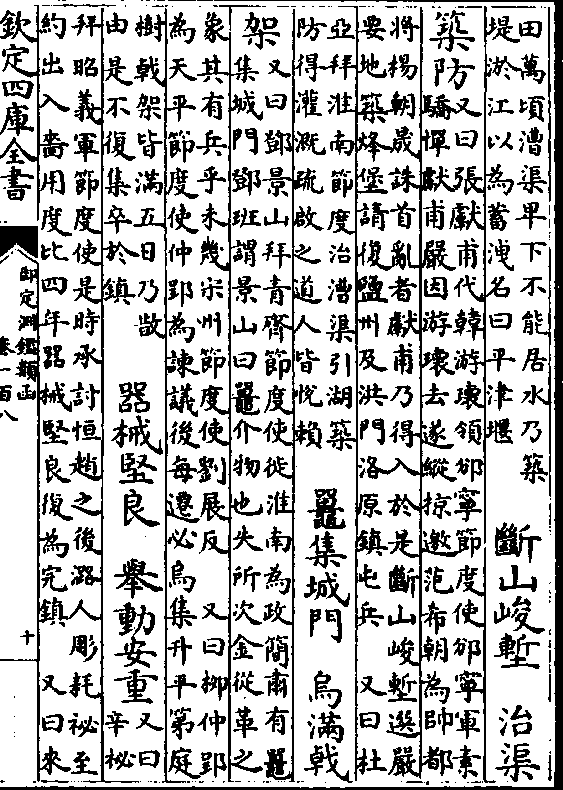 田萬頃漕渠卑下不能居水乃築
堤淤江以為蓄洩名曰平津堰
斷山峻塹 治渠
築防
又曰張獻甫代韓游瓌領邠寧節度使邠寧軍素
驕憚獻甫嚴因游瓌去遂縱掠邀范希朝為帥都
將楊朝晟誅首亂者獻甫乃得入於是斷山峻塹選嚴
要地築烽堡請復鹽州及洪門洛原鎮屯兵 又曰杜
亞拜淮南節度治漕渠引湖築
防得灌溉疏啟之道人皆悅賴
鼉集城門 烏滿戟
架
又曰鄧景山拜青齊節度使徙淮南為政簡肅有鼉
集城門鄧班謂景山曰鼉介物也失所次金從革之
象其有兵乎未幾宋州節度使劉展反 又曰柳仲郢
為天平節度使仲郢為諫議後每遷必烏集升平第庭
樹戟架皆滿五日乃散
由是不復集卒於鎮
器械堅良 舉動安重
又曰
辛祕
拜昭義軍節度使是時承討恒趙之後潞人彫耗祕至
約出入嗇用度比四年器械堅良復為完鎮 又曰來
欽定四庫全書
御定淵鑑類函
卷一百八
十